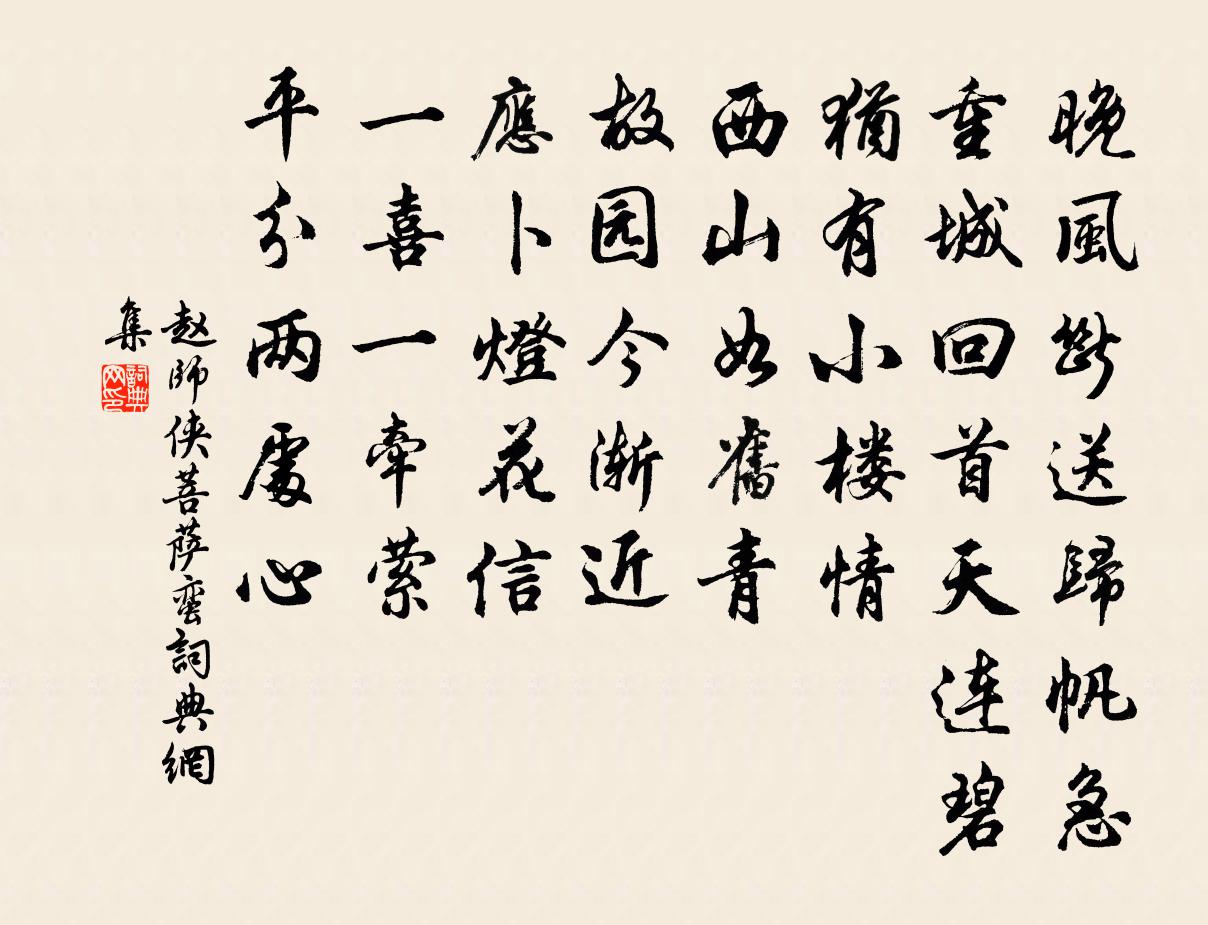 晚風斷送歸帆急
重城回首天連碧
猶有小楼情
西山如舊青
故园今渐近
應卜燈花信
一喜一牽萦
平分两處心
赵師侠菩萨蛮詞典網
集
詞典
网印